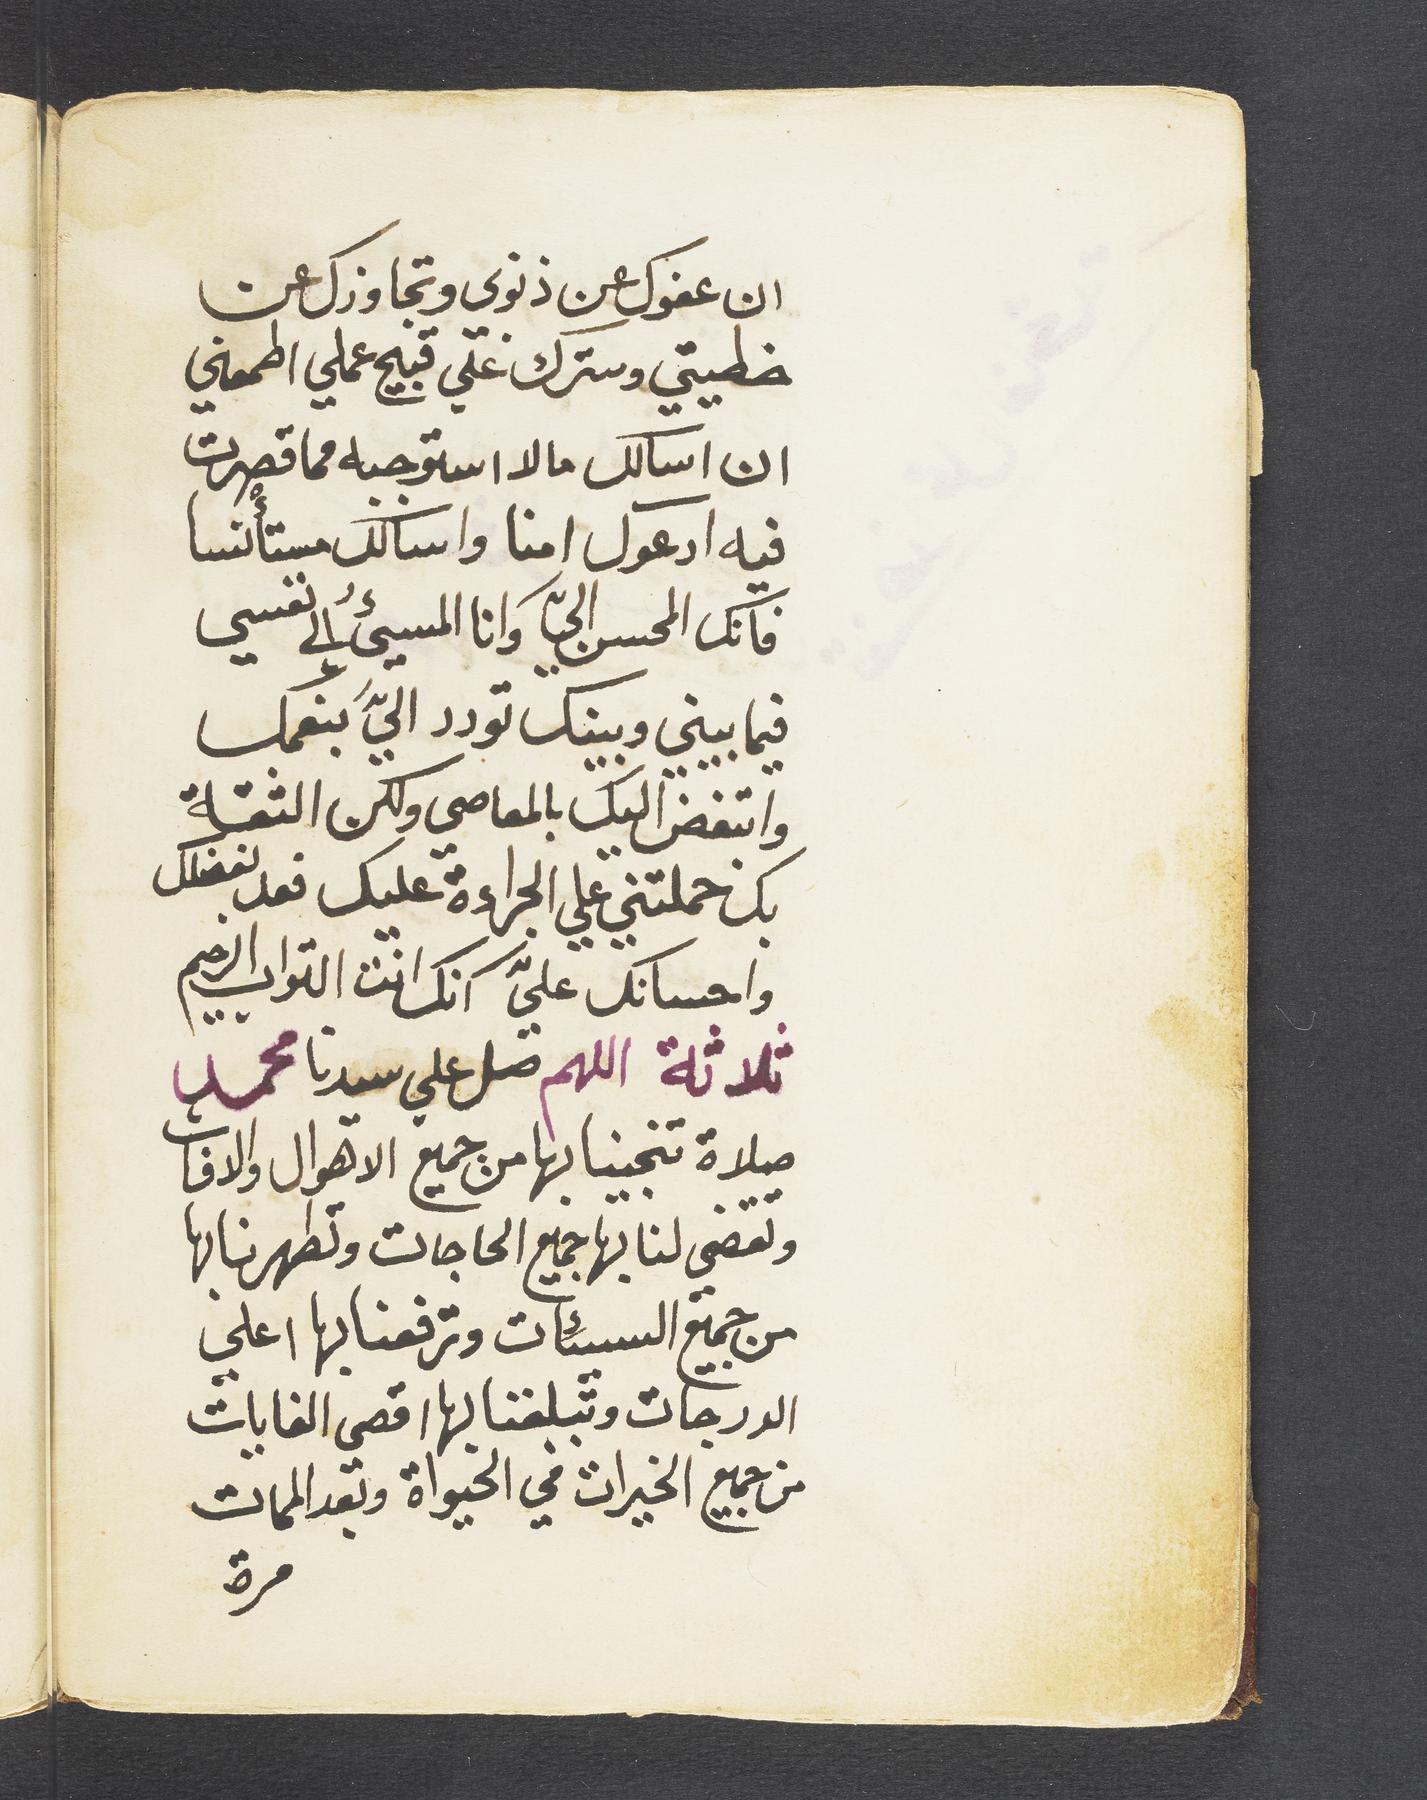 ان عفوك عن ذنوبى وتجاوزك عن
خطيتي وسترك علي قبيح عملي اطمعني
ان اسالك مالا استوجبه مما قصرت
فيه ادعوك امنا واسالك مستأنسا
فانك المحسن اليّ وانا المسيئُ إلى نفسي
فيما بيني وبينك تودد اليَّ بنعمك
واتبغض اليك بالمعاصي ولكن الثقة
بك حملتني علي الجراءة عليك فعد بفضلك
واحسانك عليّ انك انت التواب الرحيم
ثلاثة اللهم صل علي سيدنا محمد
صلاة تنجينا بها من جميع الاهوال والافات
وتقضي لنا بها جميع الحاجات وتطهرنا بها
من جميع السيئات وترفعنا بها اعلي
الدرجات وتبلغنا بها اقصي الغايات
من جميع الخيرات في الحيواة وبعد الممات
مرة